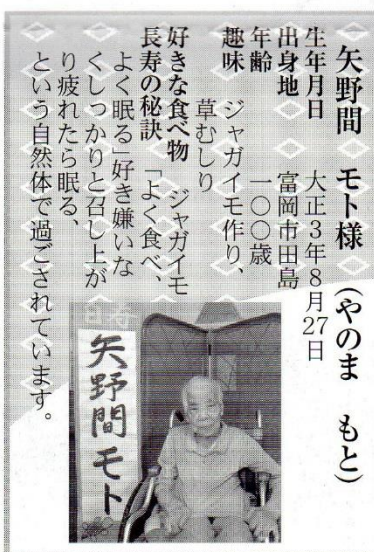 矢野間 モト様(やのま もと)
生年月日 大正3年8月27日
出身地 富岡市田島
年齢 一〇〇歳
趣味 ジャガイモ作り、
草むしり
好きな食べ物 ジャガイモ
長寿の秘訣 「よく食べ、
よく眠る」好き嫌いな
くしっかりと召し上が
り疲れたら眠る、
という自然体で過ごされています。
矢野間モト